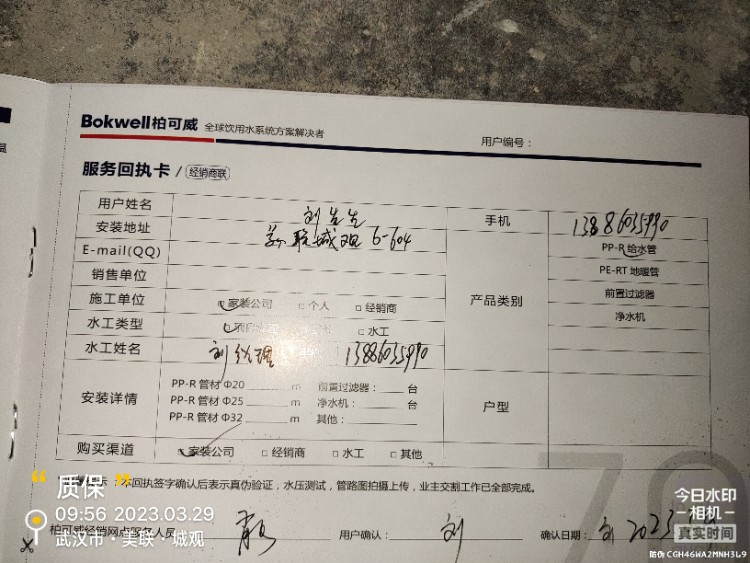 Bokwell柏可威 全球饮用水系统方案解决者
用户编号：
服务回执卡 / 经销商联
用户姓名 刘先生 手机 13886035990
安装地址 美联城观 6-604
E-mail(QQ)
销售单位
施工单位 家装公司 □ 个人 □ 经销商
水工类型 □ 水工
水工姓名 刘经理 13886035990
产品类别
PP-R 给水管
PE-RT 地暖管
前置过滤器
净水机
安装详情
PP-R 管材 Φ20 m 前置过滤器： 台
PP-R 管材 Φ25 m 净水机： 台
PP-R 管材 Φ32 m 其他：
户型
购买渠道 □ 家装公司 □ 经销商 □ 水工 □ 其他
本回执签字确认后表示真伪验证，水压测试，管路图拍摄上传，业主交割工作已全部完成。
柏可威经销网点服务人员 用户确认： 刘 确认日期： 2023
质保
09:56 2023.03.29
武汉市·美联·城观
今日水印
相机
真实时间
防伪 CGH46WA2MNH3L9